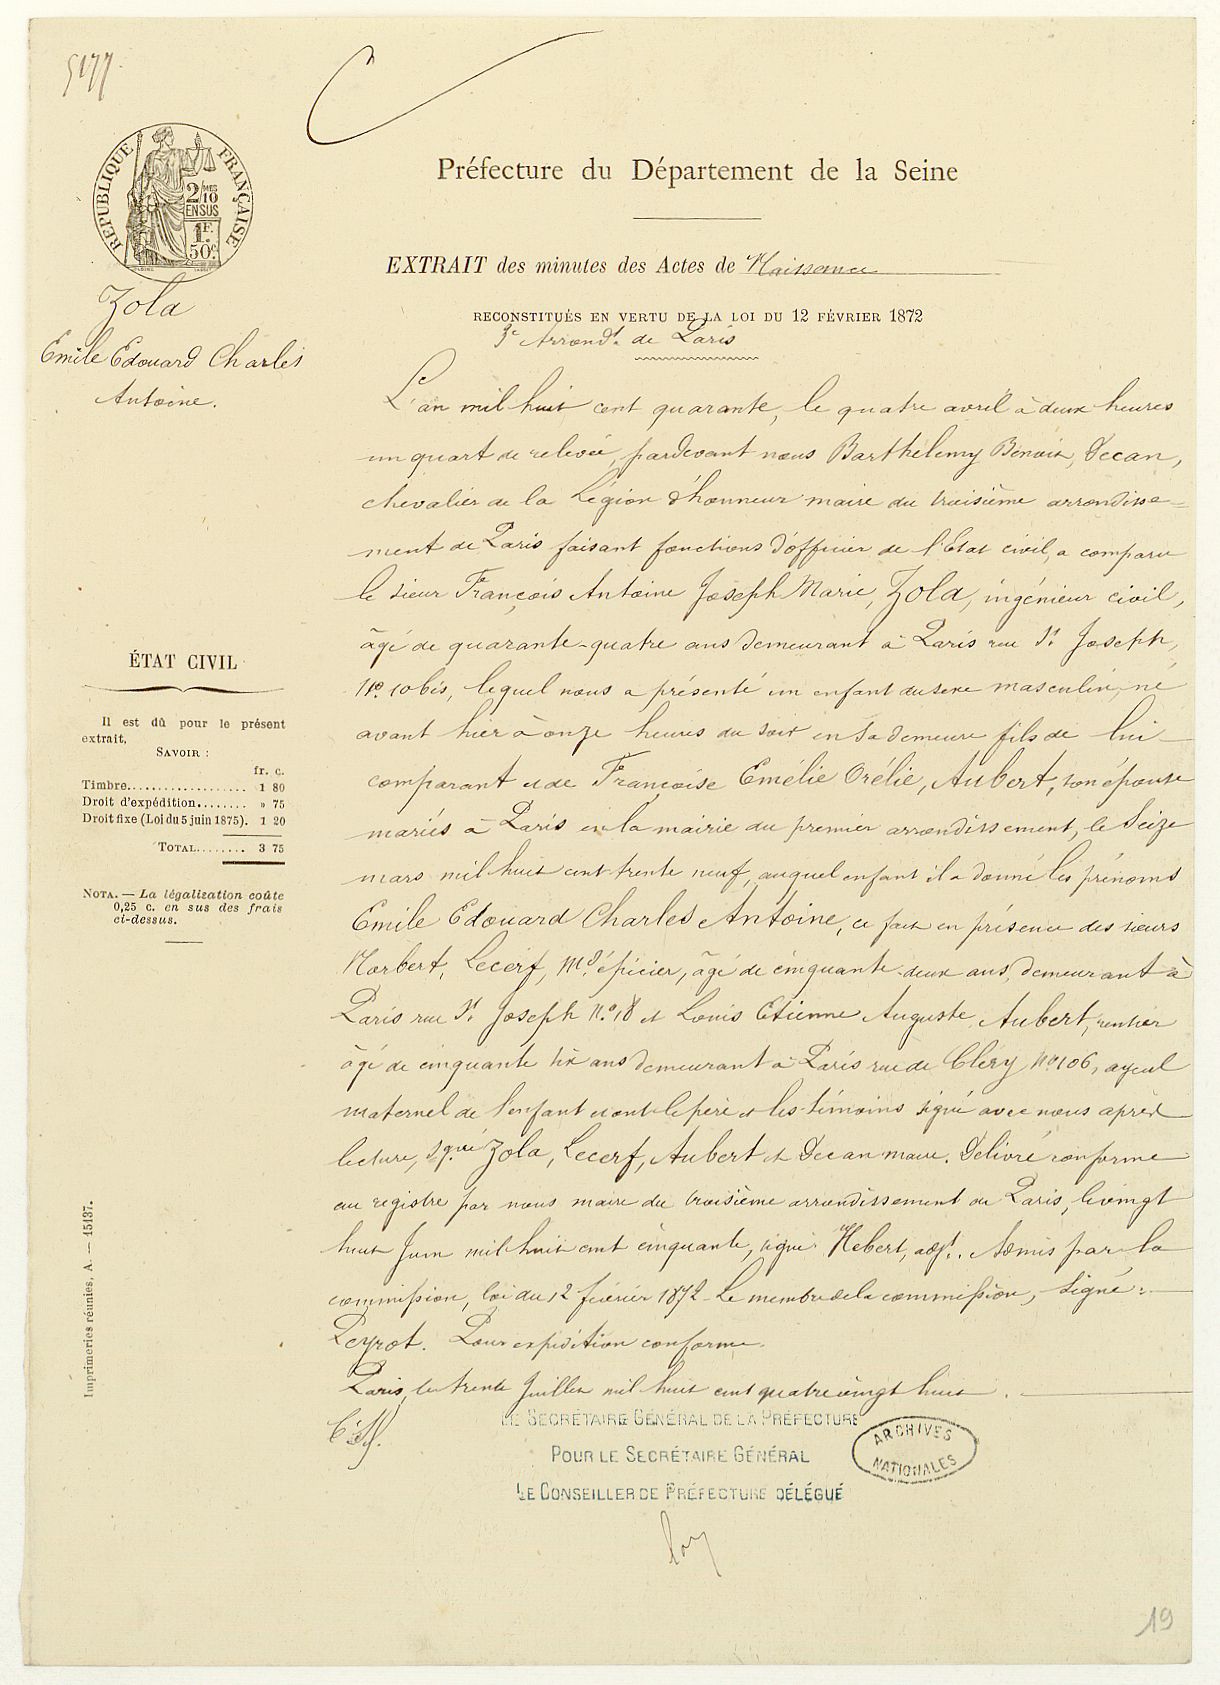 5177.
RÉPUBLIQUE FRANÇAISE
2/10 MES
EN SUS
1F.
50c.
Préfecture du Département de la Seine
EXTRAIT des minutes des Actes de Naissance
RECONSTITUÉS EN VERTU DE LA LOI DU 12 FÉVRIER 1872
3e Arrondt. de Paris
Zola
Emile Edouard Charles
Antoine.
L'an mil huit cent quarante, le quatre avril à deux heures
un quart de relevée, pardevant nous Barthélemy Benoist, Decan,
chevalier de la Légion d'honneur maire du troisième arrondisse=
ment de Paris faisant fonctions d'officier de l'Etat civil, a comparu
le sieur François Antoine Joseph Marie, Zola, ingénieur civil,
âgé de quarante-quatre ans demeurant à Paris rue St. Joseph,
No. 10 bis, lequel nous a présenté un enfant du sexe masculin, né
avant hier à onze heures du soir en sa demeure fils de lui
comparant et de Françoise Emélie Orélie, Aubert, son épouse
mariés à Paris en la mairie du premier arrondissement, le Seize
mars mil huit cent trente neuf, auquel enfant il a donné les prénoms
Emile Edouard Charles Antoine, ce fait en présence des sieurs
Norbert, Lecerf, Md. épicier, âgé de cinquante-deux ans, demeurant à
Paris rue St. Joseph No. 18 et Louis Etienne Auguste, Aubert, rentier
âgé de cinquante six ans demeurant à Paris rue de Cléry No. 106, ayeul
maternel de l'enfant et ont le père et les témoins signé avec nous après
lecture, signé Zola, Lecerf, Aubert et Decan maire. Délivré conforme
au registre par nous maire du troisième arrondissement de Paris, le vingt
huit Juin mil huit cent cinquante, signé: Hebert, adjt. Admis par la
commission, loi du 12 février 1872 - Le membre de la commission, Signé:
Peyrot. Pour expédition conforme.
Paris, le trente Juillet mil huit cent quatre vingt huit.
LE SECRÉTAIRE GÉNÉRAL DE LA PRÉFECTURE
POUR LE SECRÉTAIRE GÉNÉRAL
LE CONSEILLER DE PRÉFECTURE DÉLÉGUÉ
ARCHIVES
NATIONALES
ÉTAT CIVIL
Il est dû pour le présent
extrait,
SAVOIR :
fr. c.
Timbre.................. 1 80
Droit d'expédition........ » 75
Droit fixe (Loi du 5 juin 1875). 1 20
TOTAL........ 3 75
NOTA. — La légalisation coûte
0,25 c. en sus des frais
ci-dessus.
Imprimeries réunies, A. — 15137.
19